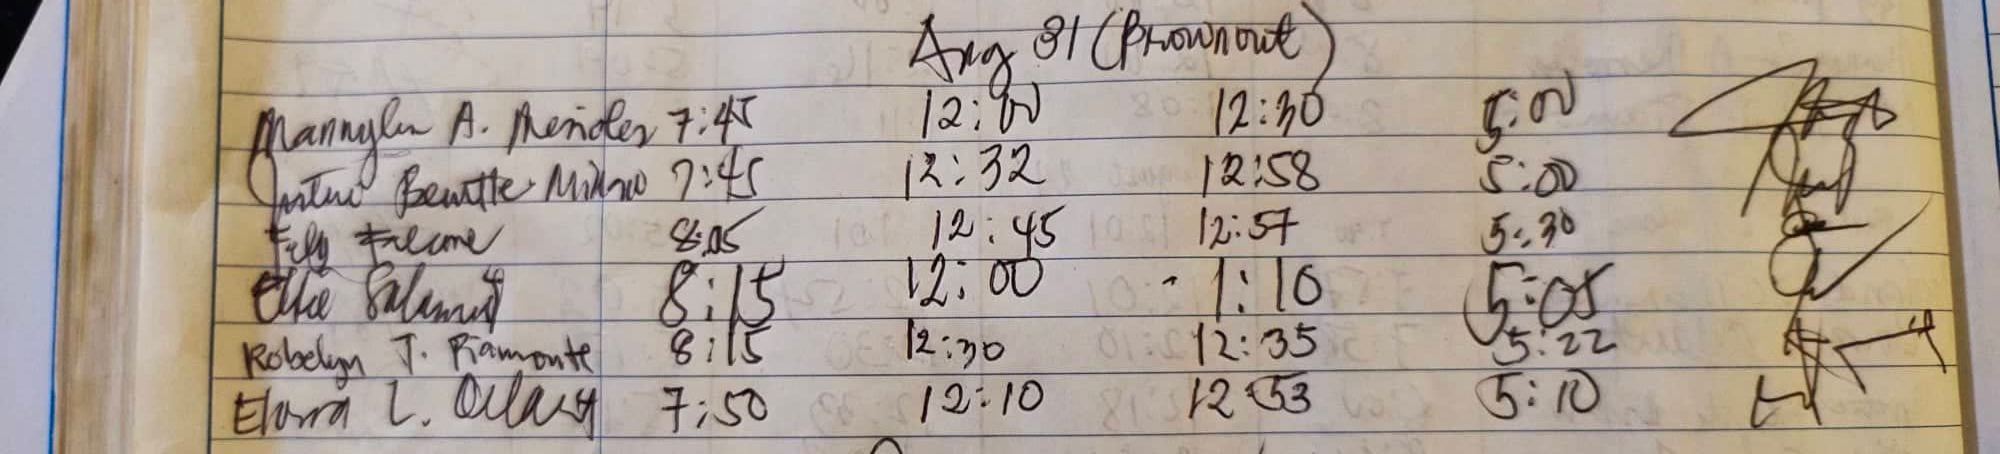 Aug 31 (Brownout)
Mannylin A. Mendez 7:45 12:00 12:30 5:00
7:45 12:32 12:58 5:00
8:05 12:45 12:57 5:30
8:15 12:00 - 1:10 5:05
Robelyn J. Piamonte 8:15 12:30 12:35 5:22
L. 7:50 12:10 12:53 5:10